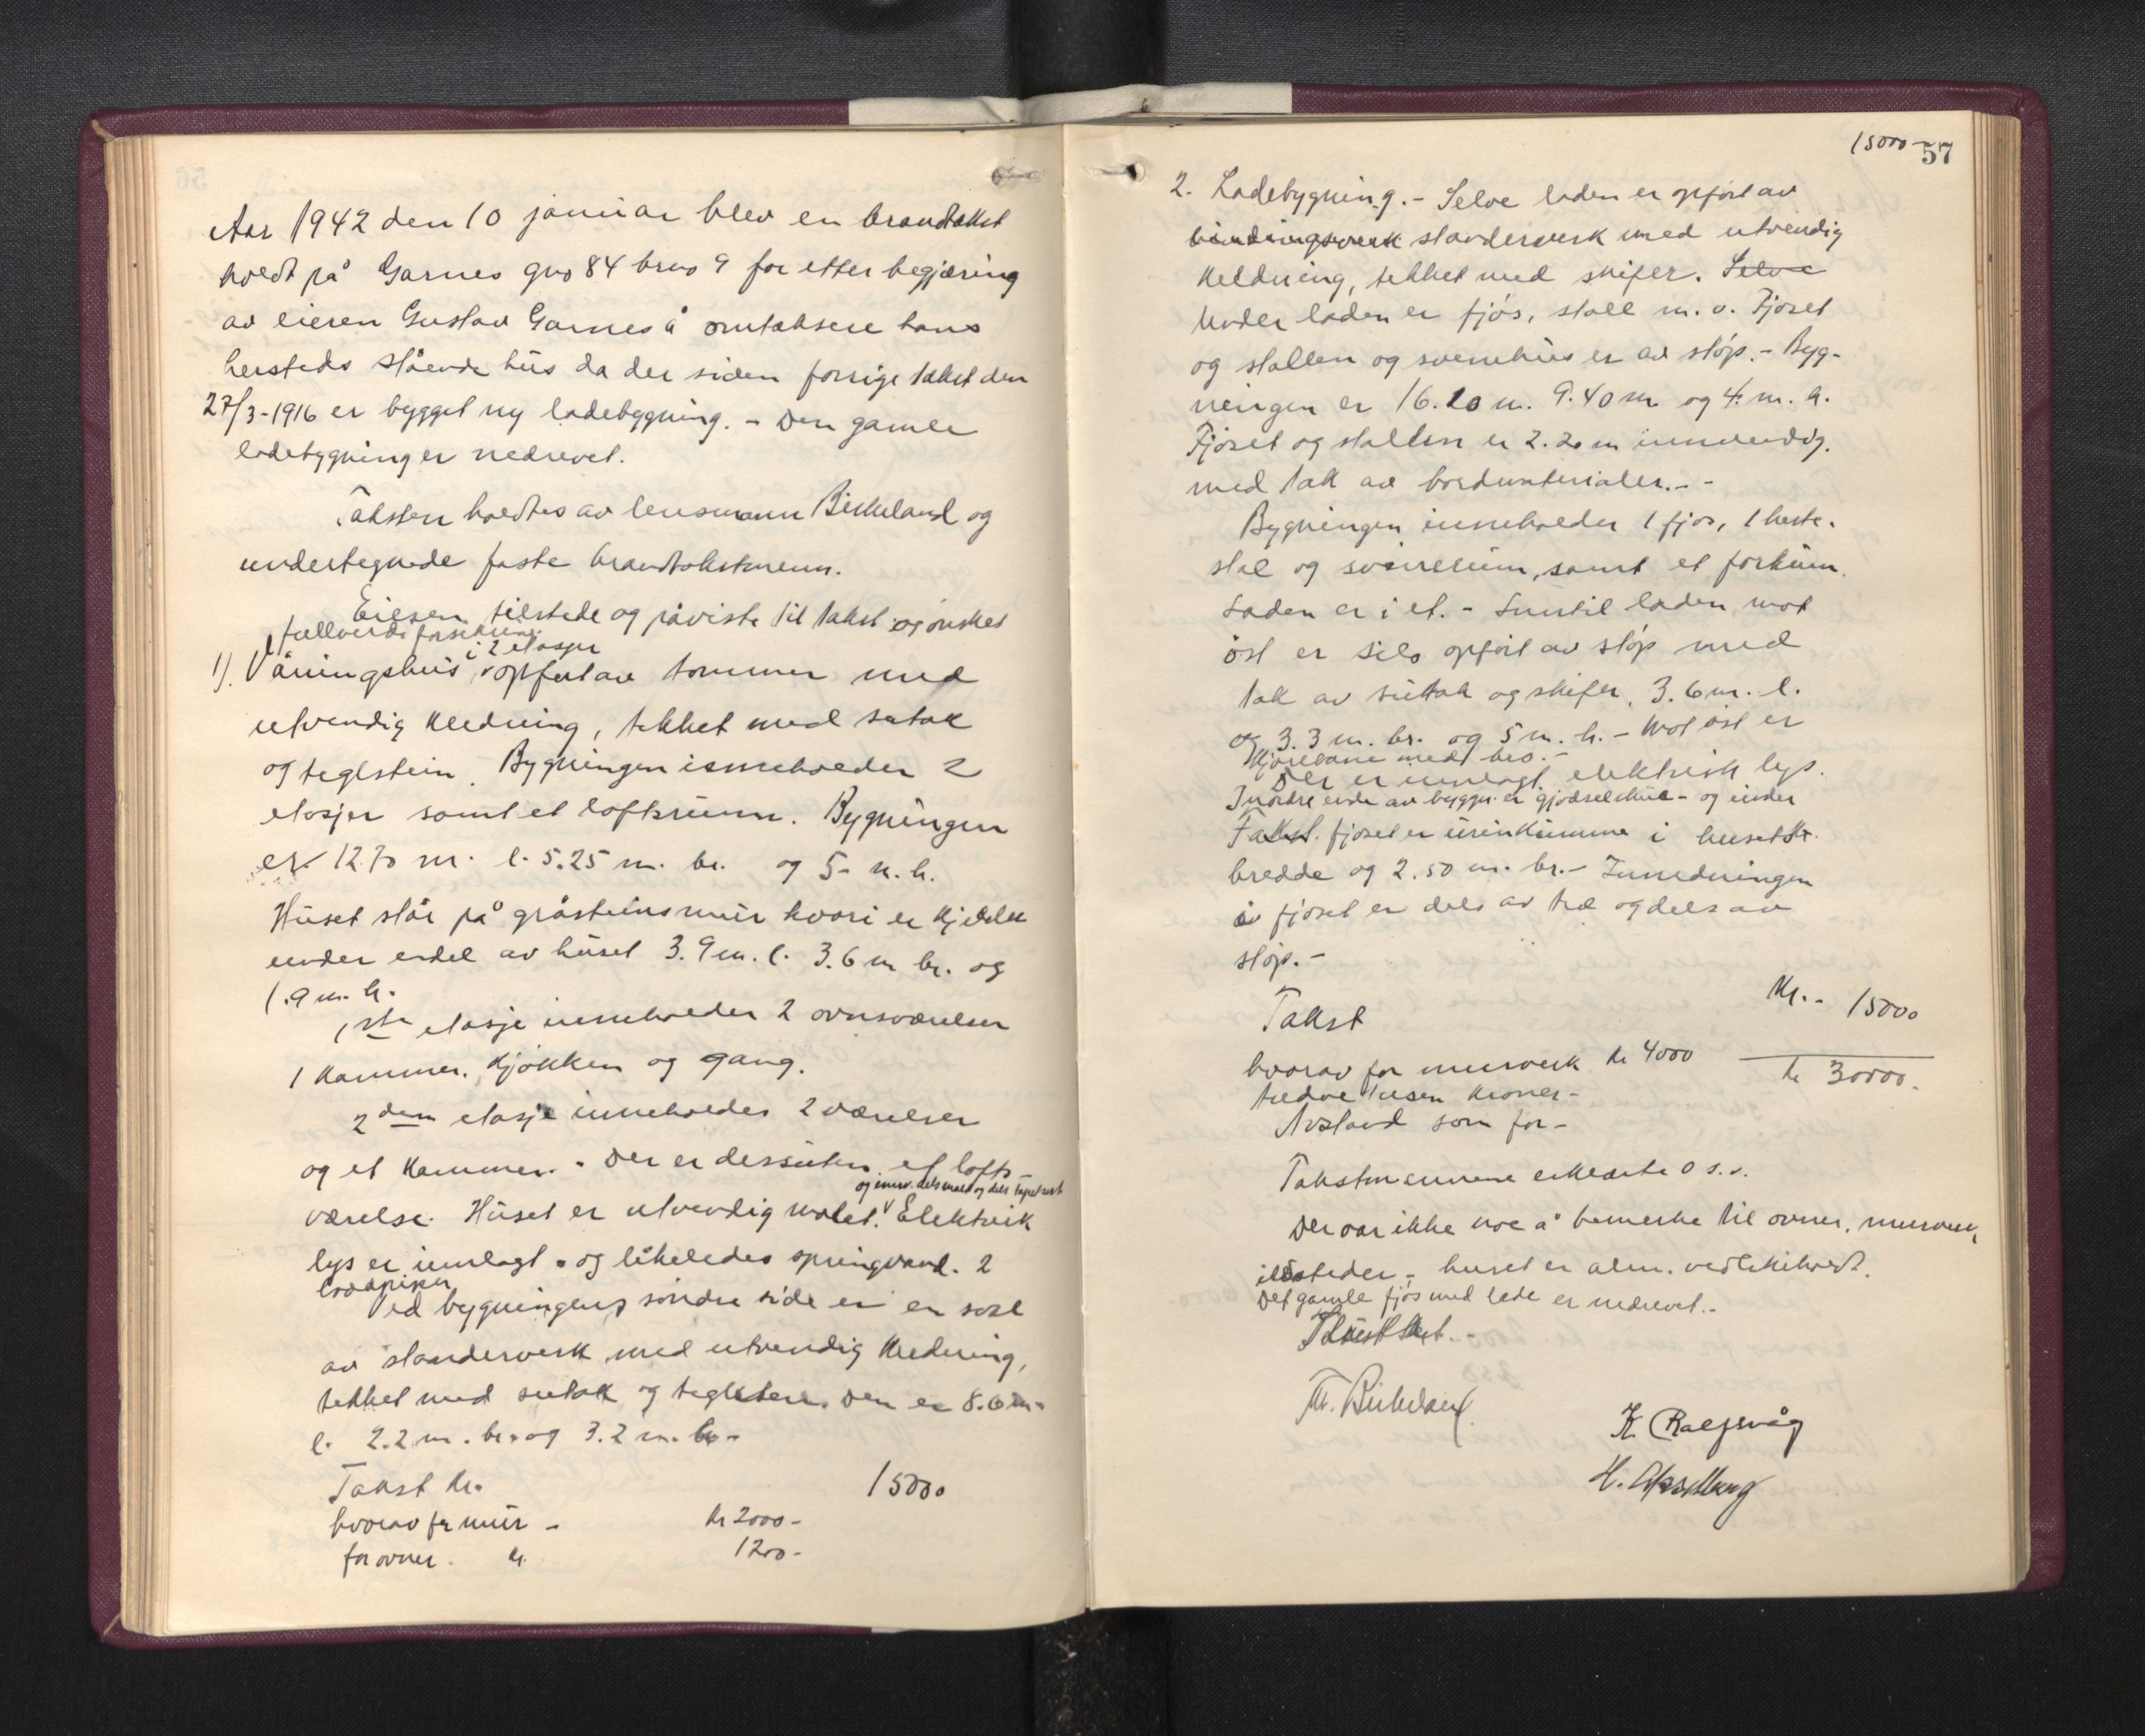 Aar 1942 den 10 januar blev en brandtakst
holdt på Garnes gno 84 brno 9 for etter begjæring
av eieren Gustav Garnes å omtaksere hans
hersteds stående hus da der siden forrige takst den
27/3-1916 er bygget ny ladebygning. - Den gamle
ladebygning er nedrevet.
Taksten holdtes av lensmann Birkeland og
undertegnede faste brandtakstmenn.
Eieren tilstede og påviste til takst og ønsket
fullverdiforsikring.
i 2 etasjer
1). Våningshus, opført av tømmer med
utvendig kledning, tekket med sutak
og teglstein. Bygningen inneholder 2
etasjer samt et loftsrum. Bygningen
er 12.70 m. l. 5.25 m. br. og 5- m. h.
Huset står på gråsteinsmur hvori er kjeller
under endel av huset 3.9 m. l. 3.6 m br. og
1.9 m. h.
1ste etasje inneholder 2 ovnsværelser
1 kammer, kjøkken og gang.
2den etasje inneholder 2 værelser
og et kammer. - Der er dessuten et lofts-
og innv. dels malt og dels tapetsert
værelse. Huset er utvendig malet. Elektrisk
lys er innlagt og likeledes springvand. 2
Ved bygningens søndre side er en sval
av standerverk med utvendig kledning,
tekket med sutak og teglsten. Den er 8.6 m.
l. 2.2 m. br. og 3.2 m. h. -
Takst kr. 15000
hvorav for mur - kr 2000 -
for ovner. kr. 1200 -
15000 -
57
2. Ladebygning. - Selve laden er opført av
bindingsverk standerverk med utvendig
kledning, tekket med skifer. Selve
Under laden er fjøs, stall m. v. Fjøset
og stallen og svinehus er av støp. - Byg-
ningen er 16.20 m. 9.40 m og 4. m. h.
Fjøset og stallen er 2.20 m innvendig.
med tak av bordmaterialer. - -
Bygningen inneholder 1 fjøs, 1 heste-
stal og svinerum, samt et forrum.
Laden er i et. - Inntil laden mot
øst er silo opført av støp med
tak av sutak og skifer, 3.6 m. l.
og 3.3 m. br. og 5 m. h. - Mot øst er
kjørebane med bro. -
Der er innlagt elektrisk lys.
I nordre ende av bygn. er gjødselskur - og under
Takst. fjøset er urinkumme i husets
bredde og 2.50 m. br. - Innredningen
i fjøset er dels av tre og dels av
støp. -
Takst kr. - 15000
hvorav for murverk kr 4000 kr 30000 -
tredve tusen kroner -
Avstand som før -
Takstmennene erklærte o s. v.
Der var ikke noe å bemerke til ovner, murverk,
ildsteder, - huset er alm. vedlikeholdt.
Det gamle fjøs med lade er nedrevet. -
Th. Birkeland.
K. Ralfsvåg